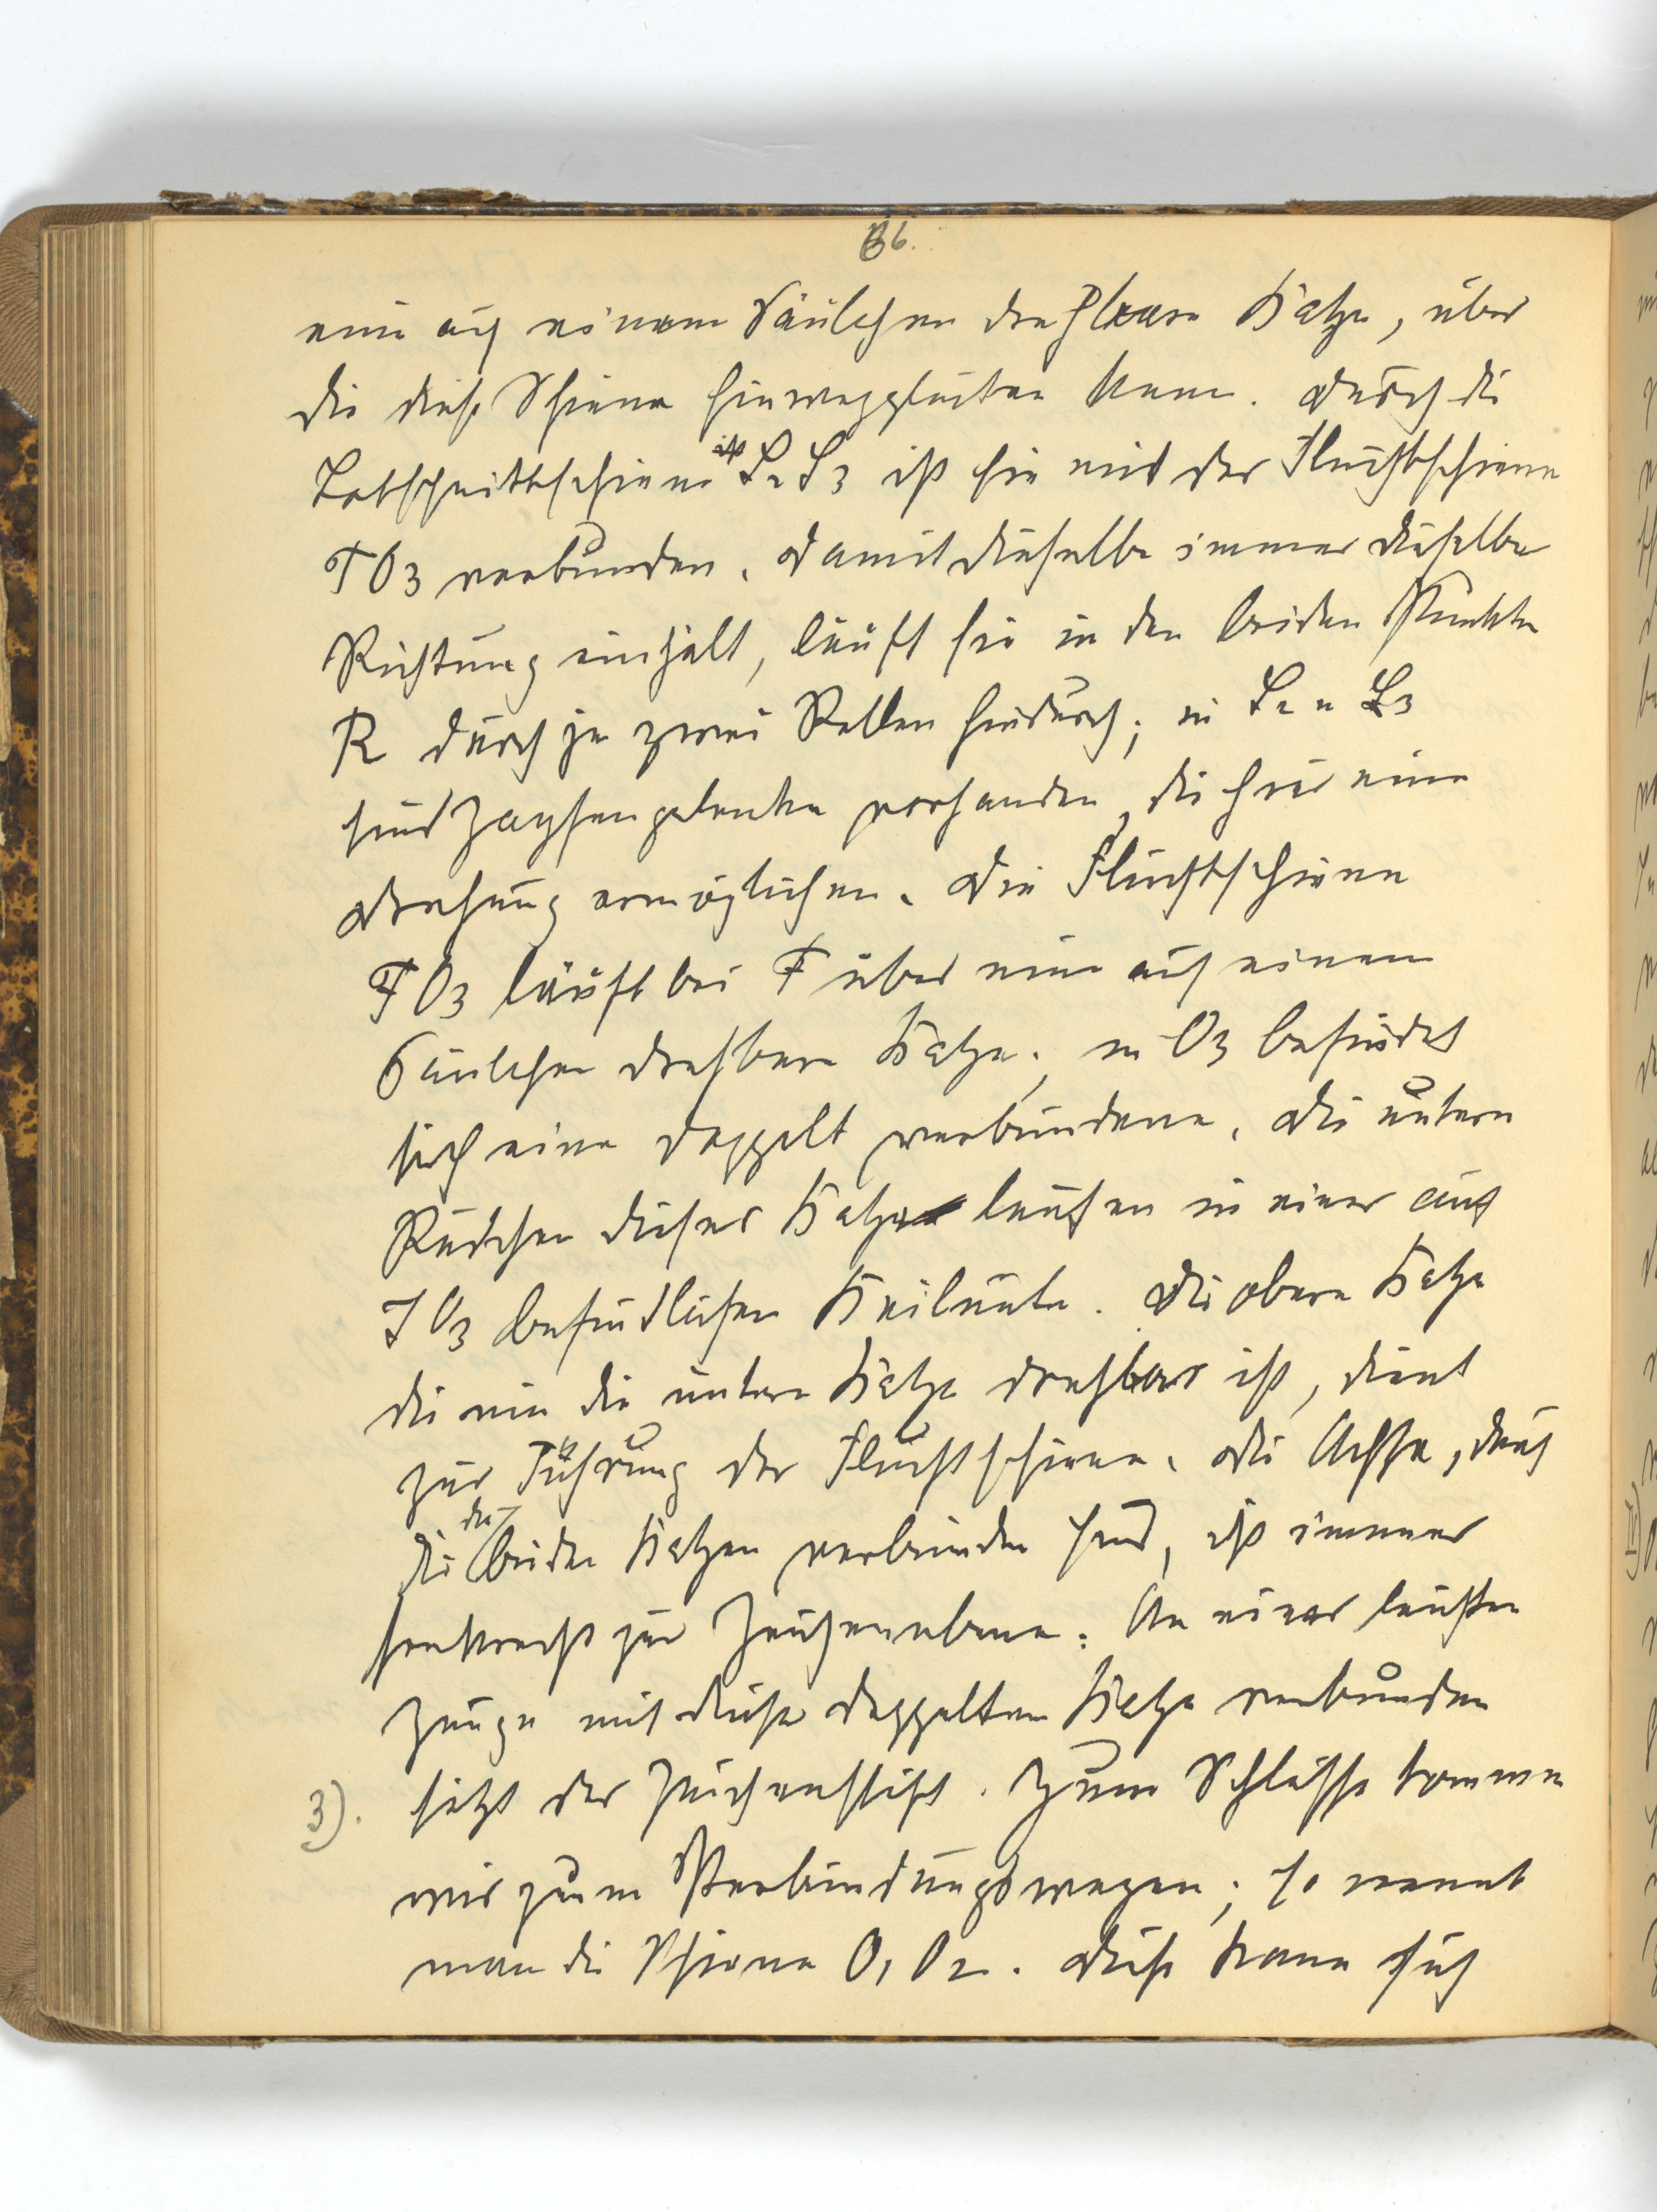 66.
eine auf einem Säulchen drehbare Katze, über
die diese Schiene hinweggleiten kann. Durch die
Lotschnittschiene L2 L3 ist sie mit der Fluchtschiene
FO3 verbunden. Damit dieselbe immer dieselbe
Richtung einhält, läuft sie in den beiden Punkten
R durch je zwei Rollen hindurch; in L2 u L3
sind Zapfengelenke vorhanden, die hier eine
Drehung ermöglichen. Die Fluchtschiene
FO3 läuft bei F über eine auf einem
Säulchen drehbare Katze; in O3 befindet
sich eine doppelt verbundene. Die untern
Rädchen dieser Katze laufen in einer auf
JO3 befindlichen Keilnute. Die obere Katze
die um die untere Katze drehbar ist, dient
zur Führung der Fluchtschiene. Die Achse, durch
die die beiden Katzen verbunden sind, ist immer
senkrecht zur Zeichenebene. An einer leichten
Zunge mit dieser doppelten Katze verbunden
3). sitzt der Zeichenstift. Zum Schlusse kommen
wir zum Verbindungswagen; so nennt
man die Schiene O1 O2. Diese kann sich